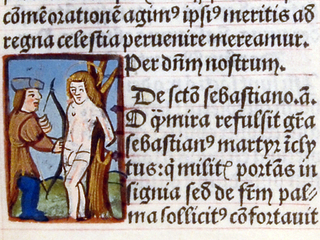 cōmēoratiōnē agimꝰ ipsiꝰ meritis ad
regna celestia peruenire mereamur.
Per dn̄m nostrum.
De sctō sebastiano. añ.
O q̄ mira refulsit gr̄a
sebastianꝰ martyr īcly
tus: q̇ militꝭ portās in
signia sed̄ de fr̄m pal-
ma sollicitꝰ cōfortauit